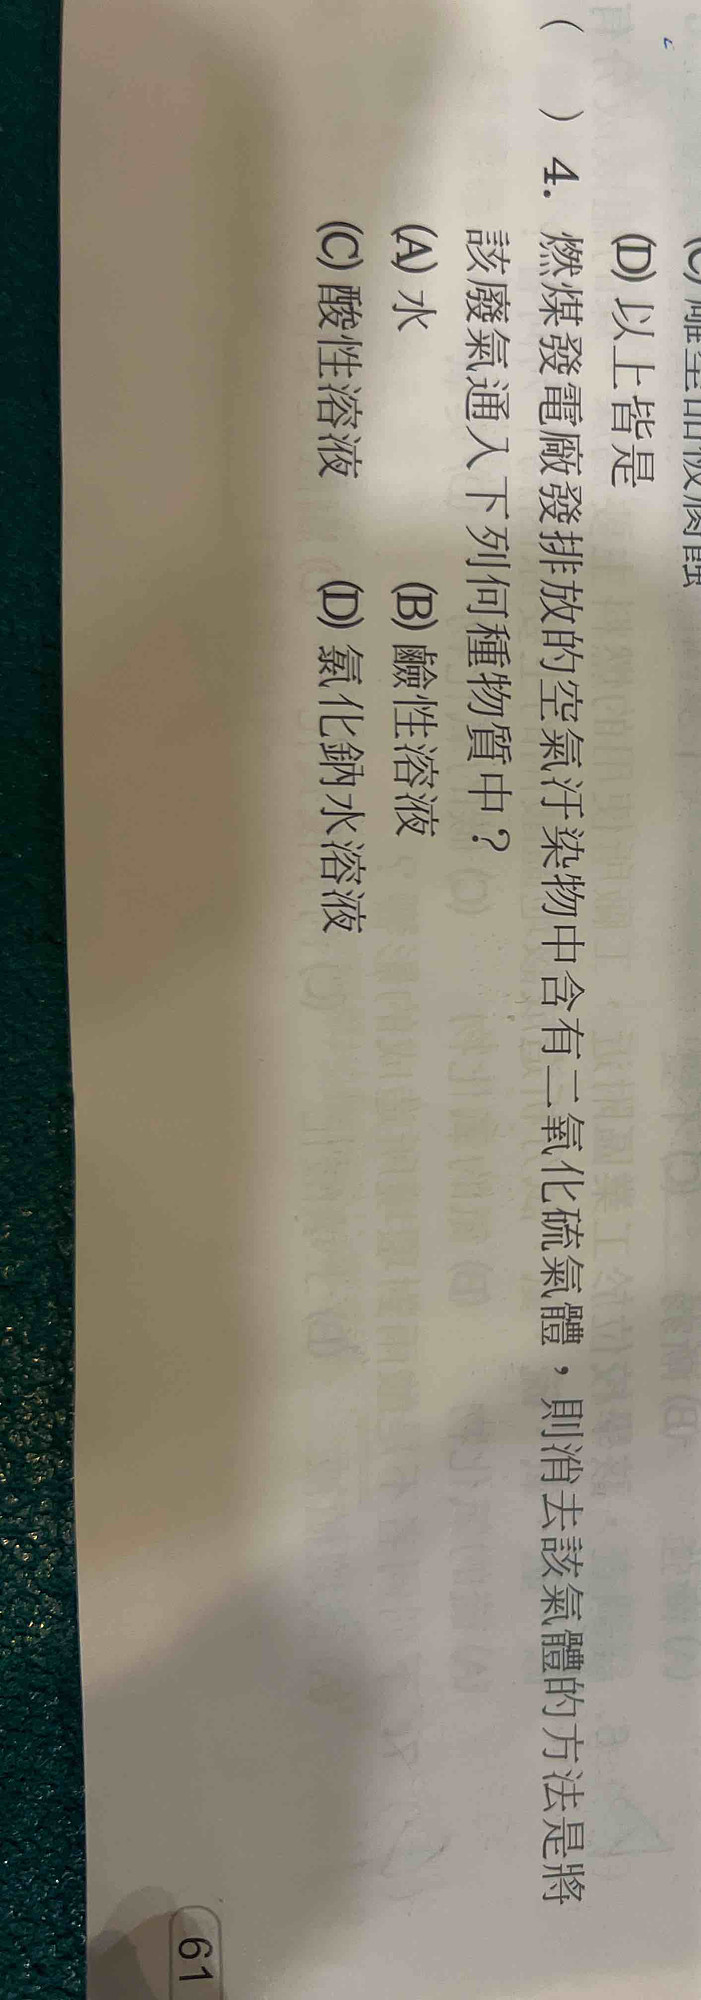 (D) 以上皆是
(　) 4. 燃煤發電廠發排放的空氣汙染物中含有二氧化硫氣體，則消去該氣體的方法是將
該廢氣通入下列何種物質中？
(A) 水　(B) 鹼性溶液
(C) 酸性溶液　(D) 氯化鈉水溶液
61